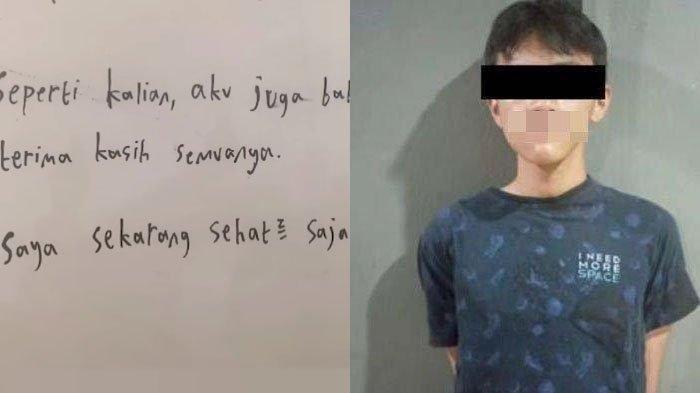 Seperti kalian, aku juga
terima kasih semuanya.
Saya sekarang sehat² saja
I NEED
MORE
SPACE